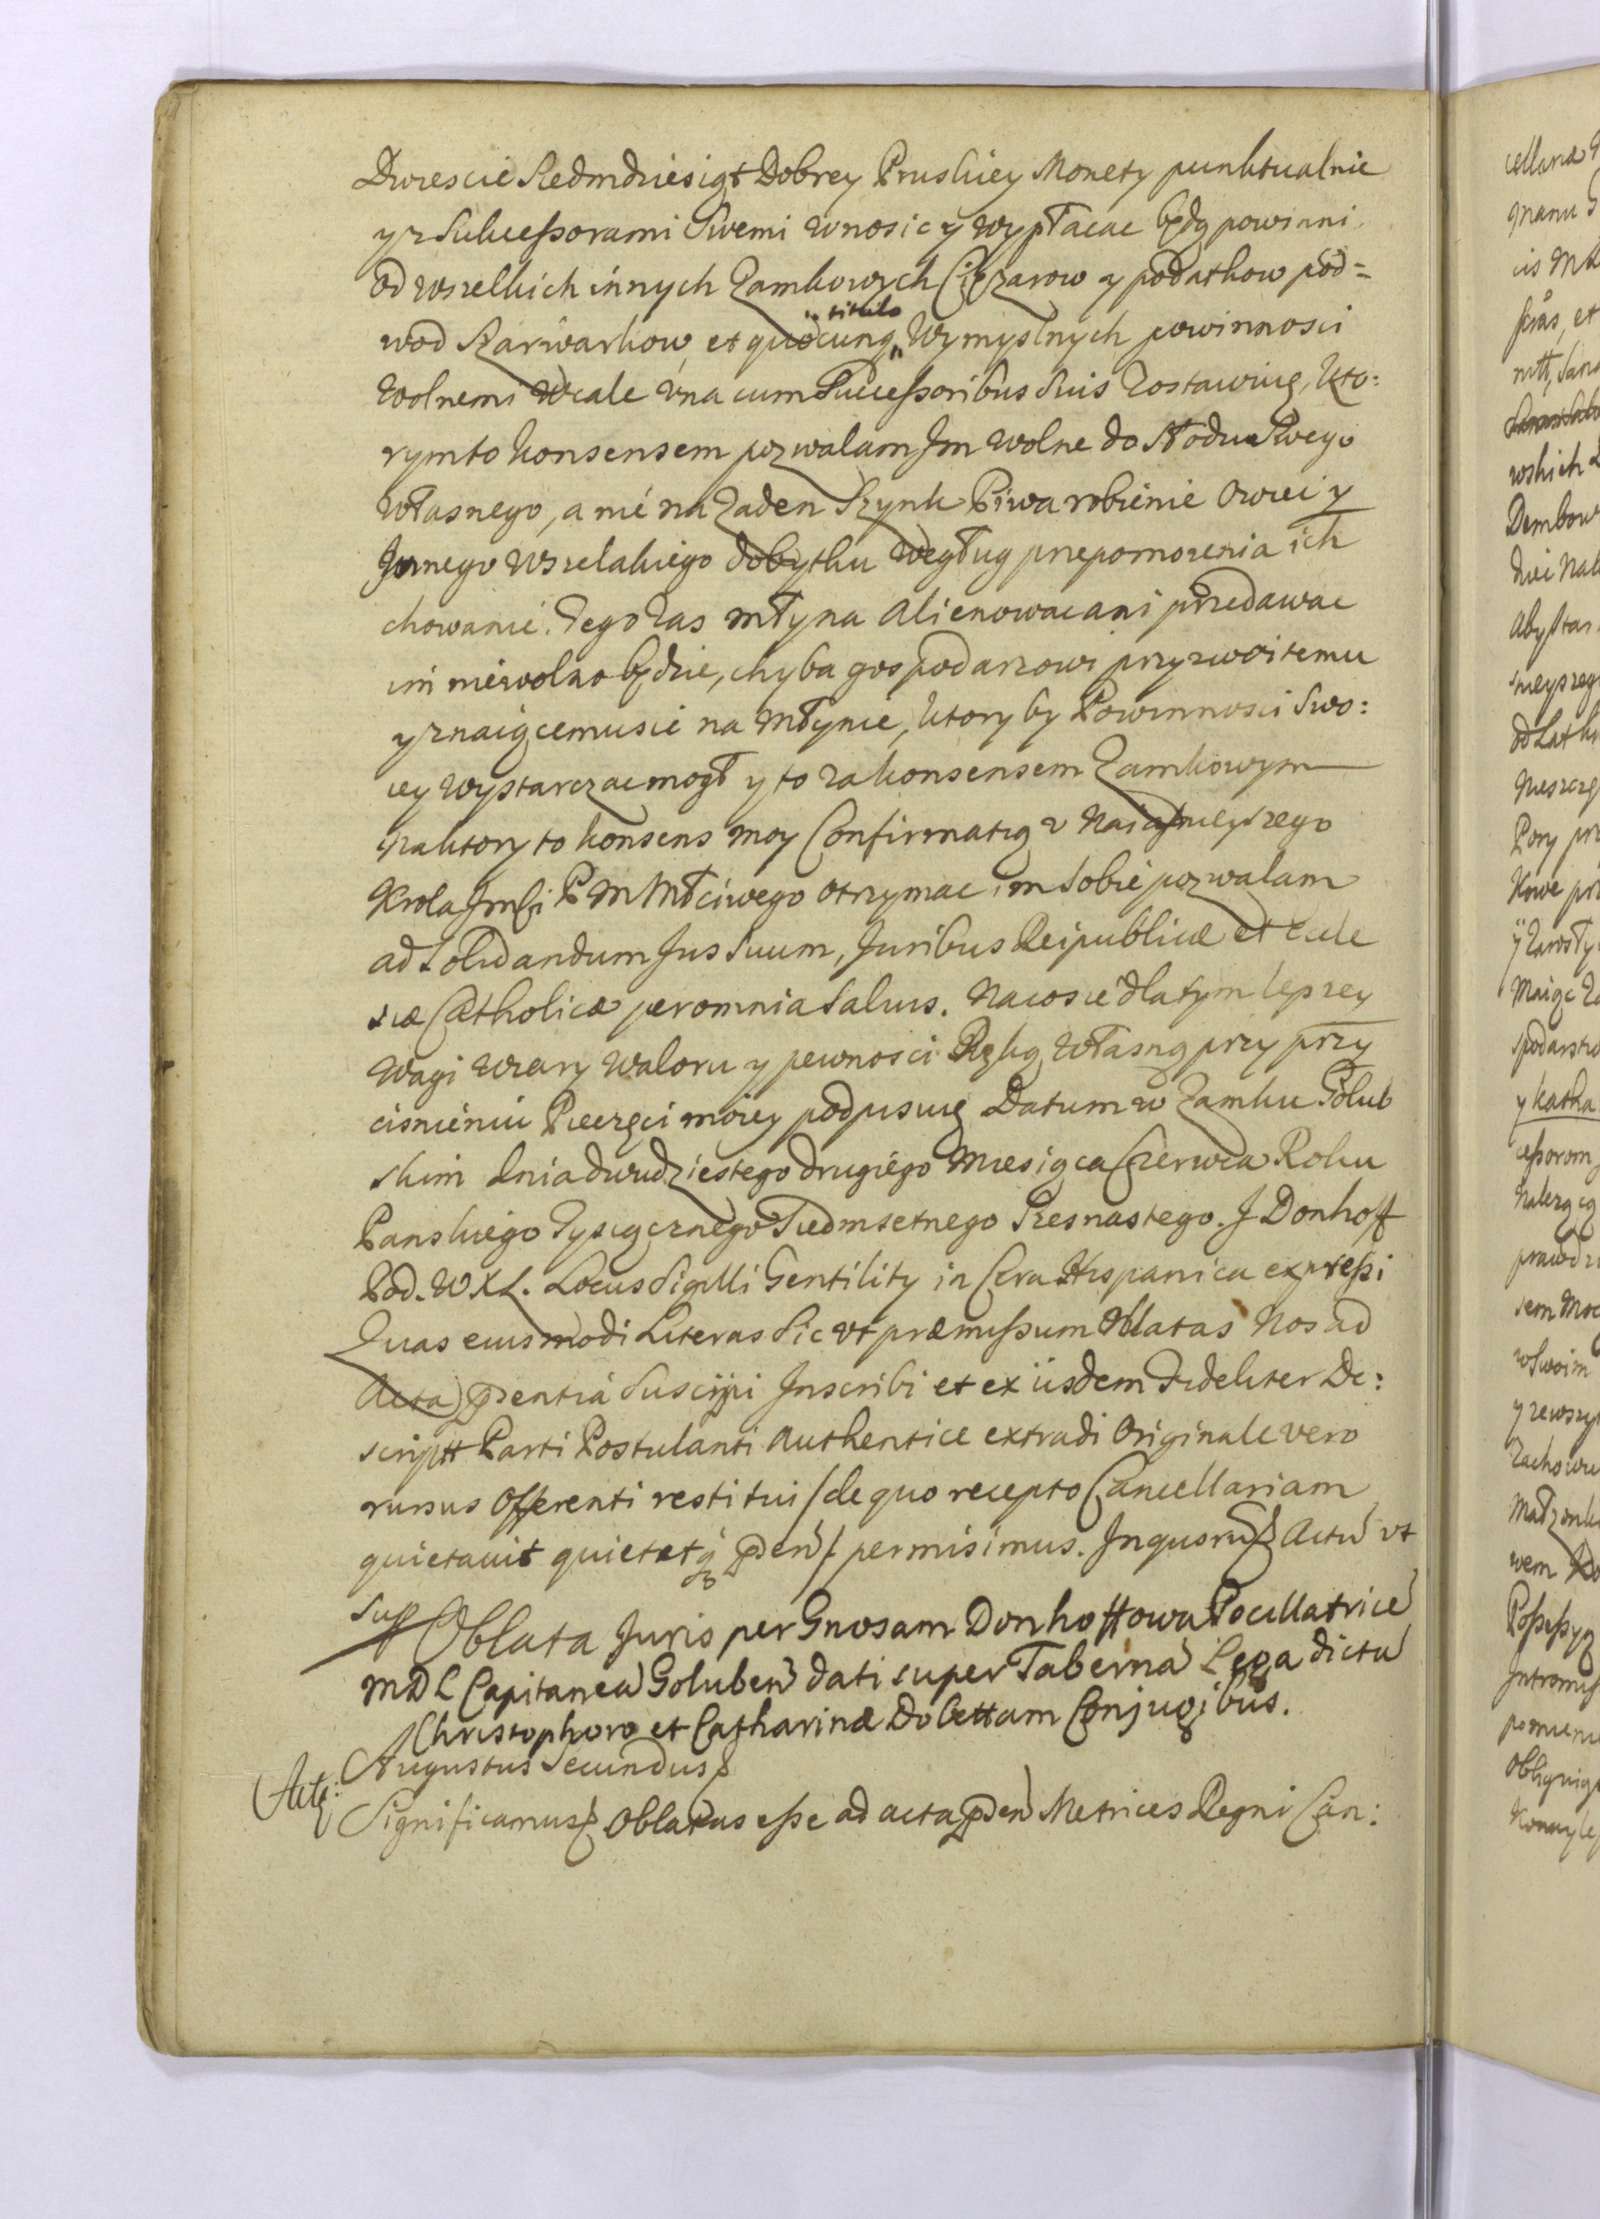 Dwiescie Siedmdziesiąt Dobrey Pruskiey Monety punktualnie
y z Sukcessorami Swemi wnosic y wypłacac będą powinni
od wszelkich innych Zamkowych Ciężarow y podatkow pod=
wod Szarwarkow, et quocunq titulo Wymyslnych powinnosci
Wolnemi wcale una cum Successoribus Suis Zostawiuę, kto:
rymto konsensem pozwalam Jm wolne do Stodu Swego
własnego, a nie na Zaden Szynk Piwa robienie Owiec y
Jnnego wszelakiego dobytku według przepomozenia ich
chowanie. Tego Zas Młyna Alienowac ani przedawac
im niewolno będzie, chyba gospodarzowi przyzwoitemu
y znaiącemusie na Młynie, ktory by Powinnosci Swo:
iey wystarczac mogł y to za konsensem Zamkowym
na ktory to konsens moy Confirmatią u Naiasnieyszego
Krola Jmsci P M Młciwego otrzymac im Sobie pozwalam
ad Solidandum Jus Suum, Juribus Reipublicæ et Eccle
siæ Catholicæ per omnia Salvis. Na co sie dla tym lepszey
Wagi wiary waloru y pewnosci Ręką własną przy przy
cisnieniu Pieczęci moiey podpisuię Datum w Zamku Golub
skim dnia dwudziestego drugiego Miesiąca Czerwca Roku
Panskiego Tysiącznego Siedmsetnego Szesnastego. J Donhoff
Pod. W X L. Locus Sigilli Gentility in Cera Hispanica expressi
Quas eiusmodi Literas Sic ut præmissum Oblatas Nos ad
Acta pdentia Suscipi Inscribi et ex iisdem Fideliter De:
scriptt Parti Postulanti Authentice extradi Originale vero
rursus Offerenti restitui /de quo recepto Cancellariam
quietavit quietatq pden/ permisimus. In quor Actu ut
sup
Oblata Juris per Gnosam Donhoffowa Pocillatrice
M D L Capitanea Goluben dati super Taberna Lega dicta
Christophoro et Catharinæ Dobettam Conjugibus.
Augustus Secundus
Actz:
Significamus Oblatas esse ad acta pden Metrices Regni Can: